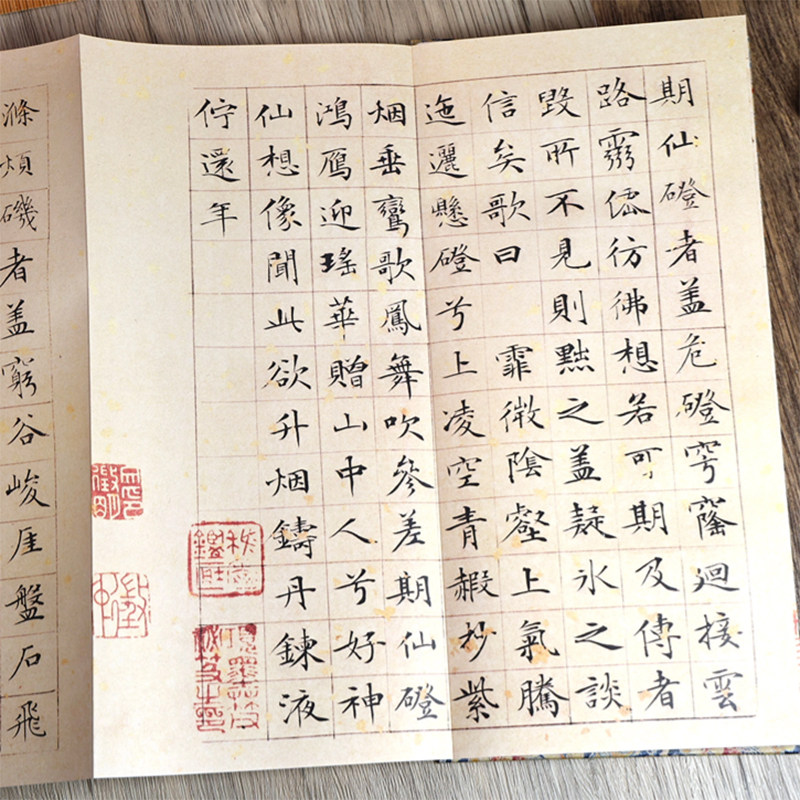 期仙磴者盖危磴穹窿迴接雲
路靈僊彷彿想若可期及傳者
毀所不見則黜之盖疑氷之談
信矣歌曰 霏微陰壑上氣騰
迤邐懸磴兮上凌空青赮杪紫
烟垂鸞歌鳳舞吹參差期仙磴
鴻鴈迎瑤華贈山中人兮好神
仙想像聞此欲升烟鑄丹鍊液
佇還年
滌煩磯者盖窮谷峻厓盤石飛